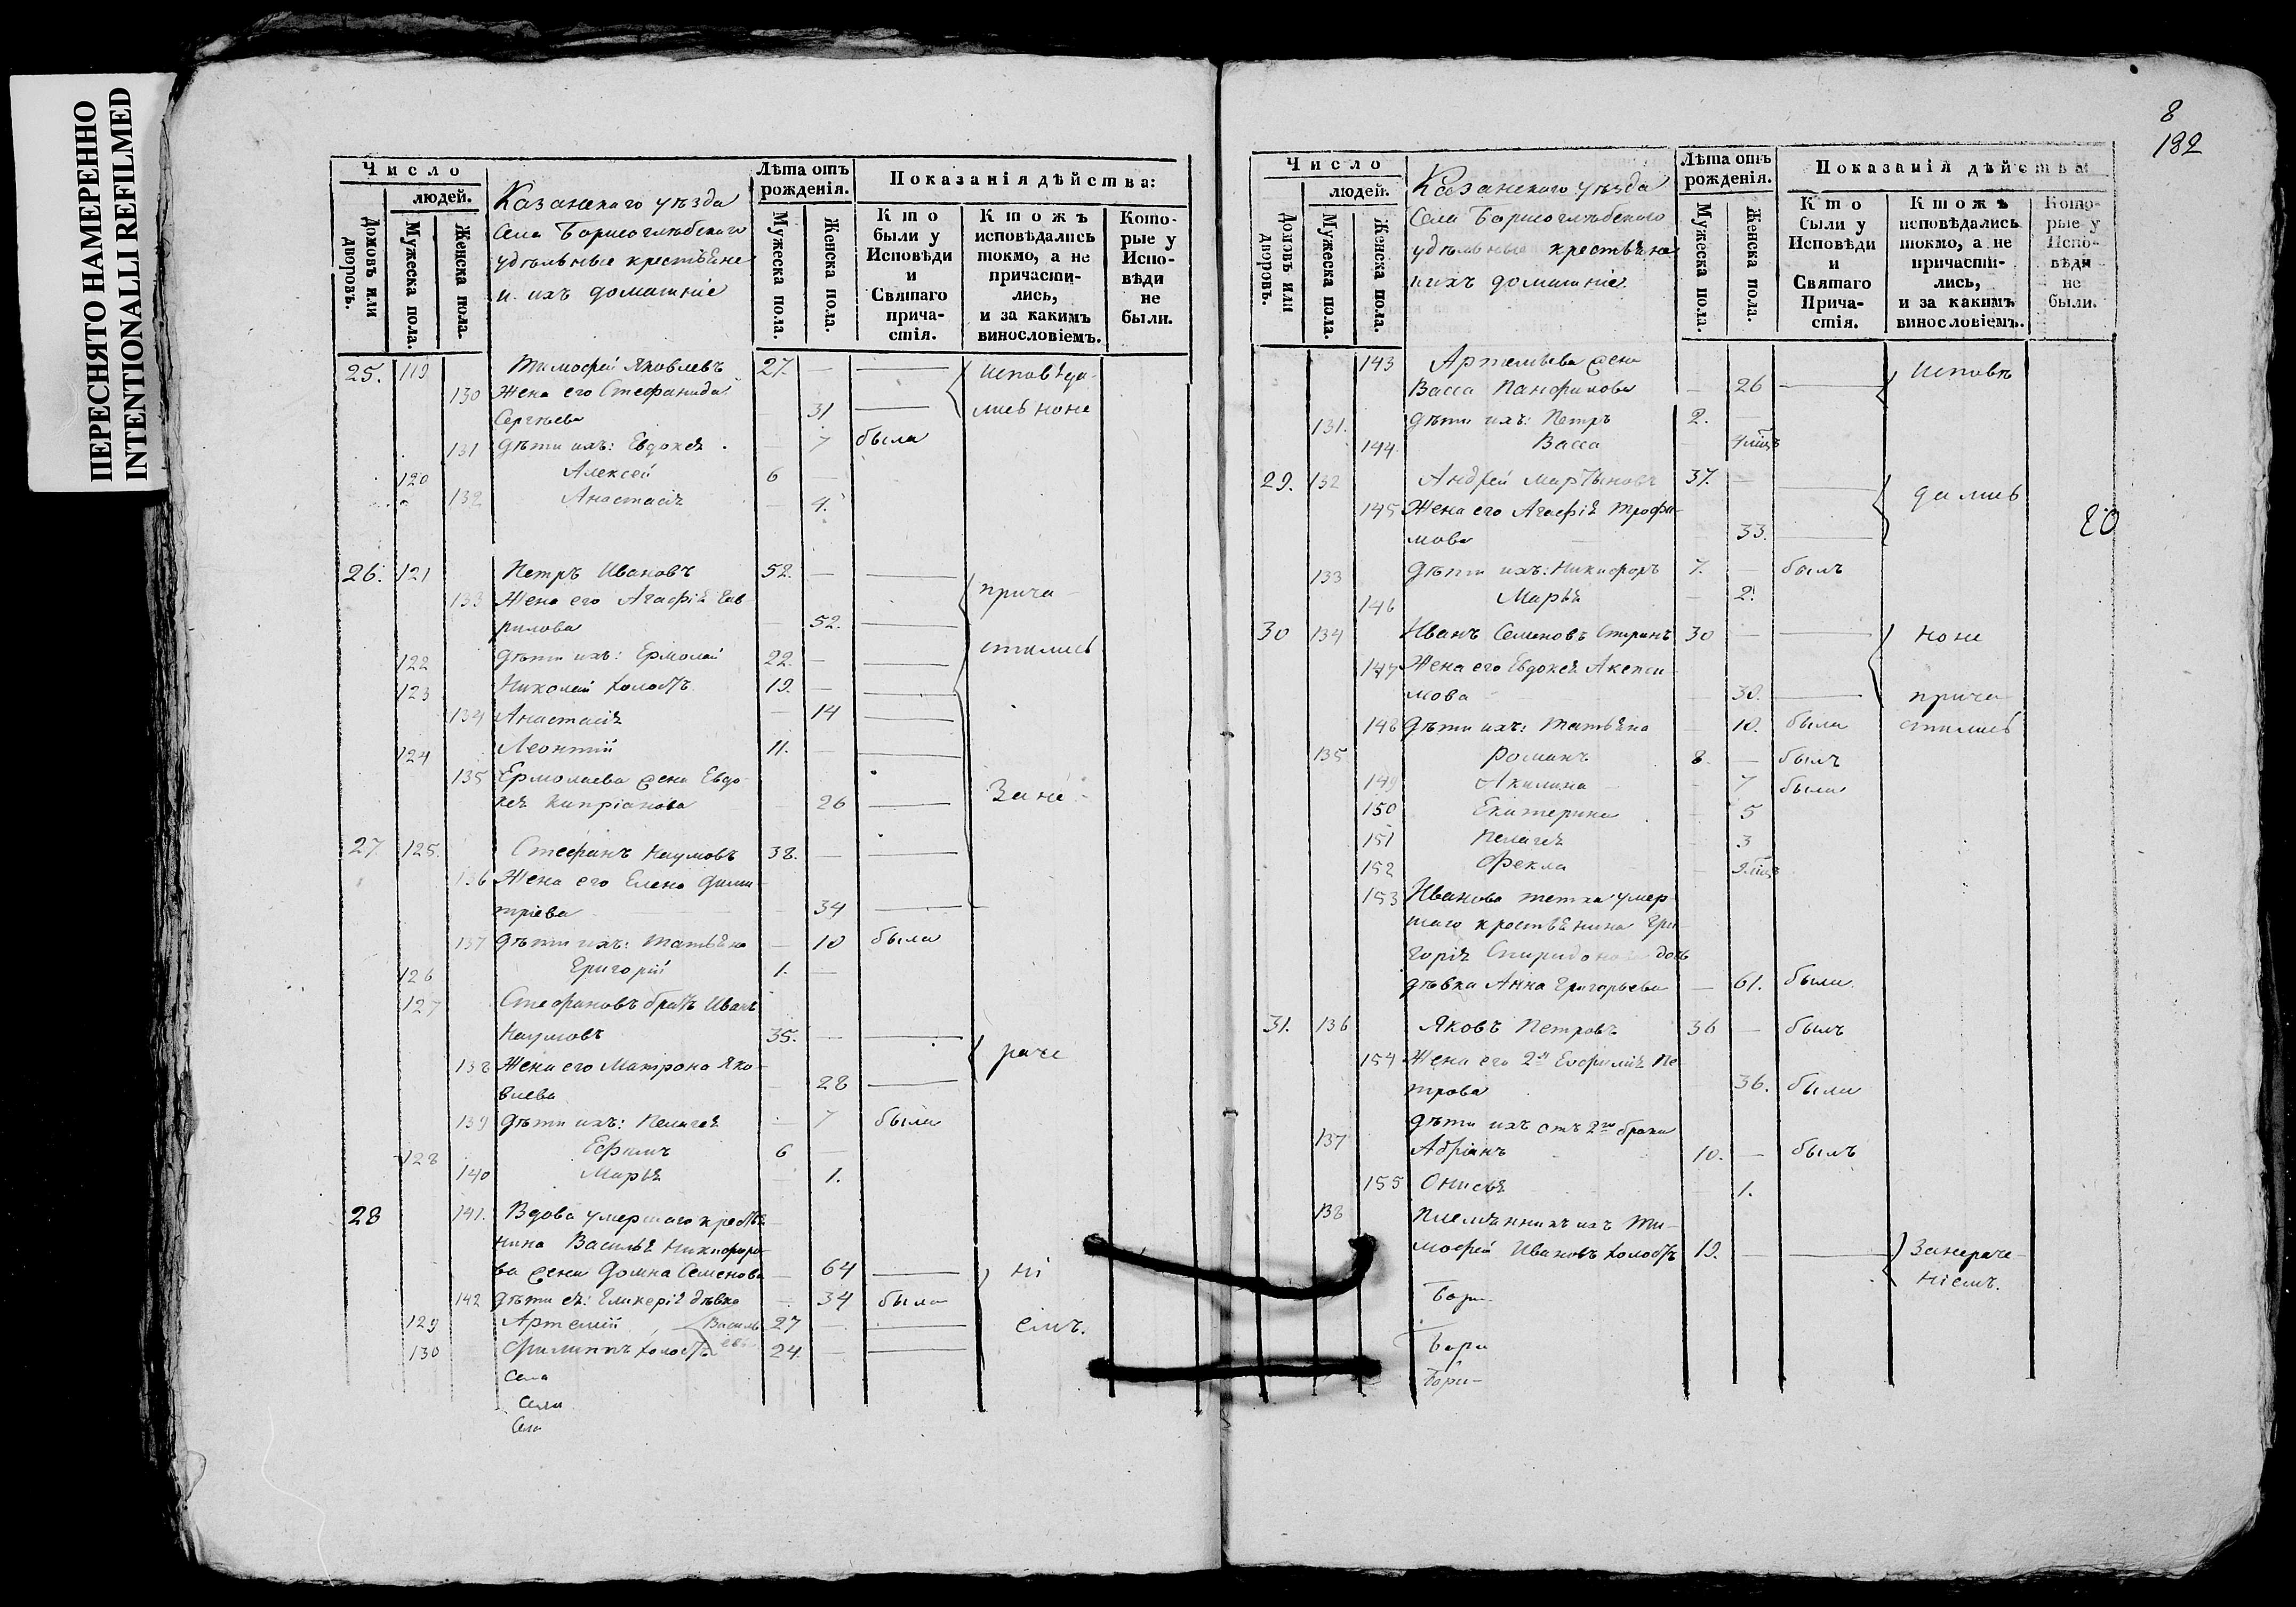 ПЕРЕСНЯТО НАМЕРЕННО
INTENTIONALLI REFILMED
Число
людей.
Домовъ или дворовъ.
Мужеска пола.
Женска пола.
Казанскаго уѣзда
Села Борисоглѣбскаго
удѣльные крестьяне
и ихъ домашніе
Лѣта отъ рожденія.
Мужеска пола.
Женска пола.
Показанія дѣйства:
Кто были у Исповѣди и Святаго причастія.
Ктожъ исповѣдались токмо, а не причастились, и за какимъ винословіемъ.
Которые у Исповѣди не были.
25. 119 Тимофей Яковлевъ 27. — — исповѣда-
130 Жена его Стефанида
Сергѣева — 31 — лись но не
131 дѣти ихъ: Евдокея — 7 была
120 Алексей 6 —
132 Анастасія — 4.
26. 121 Петръ Ивановъ 52. — —
133 Жена его Агафія Гав- прича-
рилова — 52. —
122 дѣти ихъ: Ермолай 22. — — стились
123 Николай холостъ 19. — —
134 Анастасія — 14 —
124 Леонтій 11. — —
135 Ермолаева жена Евдо-
кея Кипріанова — 26 — За не-
27 125. Стефанъ Наумовъ 38. — —
136 Жена его Елена Дими-
тріева 34 —
137 дѣти ихъ: Татьяна — 10 была
126 Григорій 1. —
127 Стефановъ братъ Иванъ
Наумовъ 35. — —
138 Жена его Матрона Яко- раче
влева — 28 —
139 дѣти ихъ: Пелагея — 7 была
128 Ефимъ 6 —
140 Марья 1.
28 141. Вдова умершаго крестья-
нина Василья Никифоро-
ва жена Домна Семенова — 64 — ні
142 дѣти ея: Гликерія дѣвка — 34 была
129 Артемій Василь- 27 — — емъ.
130 Филиппъ холостъ евы 24. — —
Села
Села
Села
8
182
Число
людей.
Домовъ или дворовъ.
Мужеска пола.
Женска пола.
Казанскаго уѣзда
Села Борисоглѣбскаго
удѣльные крестьяне
и ихъ домашніе
Лѣта отъ рожденія.
Мужеска пола.
Женска пола.
Показанія дѣйства:
Кто были у Исповѣди и Святаго Причастія.
Ктожъ исповѣдались токмо, а не причастились, и за какимъ винословіемъ.
Которые у Исповѣди не были.
143 Артемьева жена исповѣ
Васса Панфилова — 26 —
131. дѣти ихъ: Петръ 2.
144 Васса —
29. 132 Андрей Мартыновъ 37. — —
145 Жена его Агафія Трофи- дались
мова 33. —
20
133 дѣти ихъ: Никифоръ 7. — былъ
146 Марья — 2.
30 134 Иванъ Семеновъ 30 — — но не
147 Жена его Евдокея Акепси-
мова — 30. — прича
148 дѣти ихъ: Татьяна — 10. была стились
135 Романъ 8. — былъ
149 Акилина — 7 была
150 Екатерина — 5
151 Пелагея — 3
152 Фекла —
153 Иванова тетка умер-
шаго крестьянина Гри-
горія Спиридонова дочь
дѣвка Анна Григорьева — 61. была
31. 136 Яковъ Петровъ 36 — былъ
154 Жена его 2я Евфимія Пе
трова 36. была
дѣти ихъ отъ 2го брака
137 Адріанъ 10. — былъ
155 Онисья 1.
138 Племянникъ ихъ Ти-
мофей Ивановъ холостъ 19. — — За нераче-
ніемъ.
Бори-
Бори
Бори-